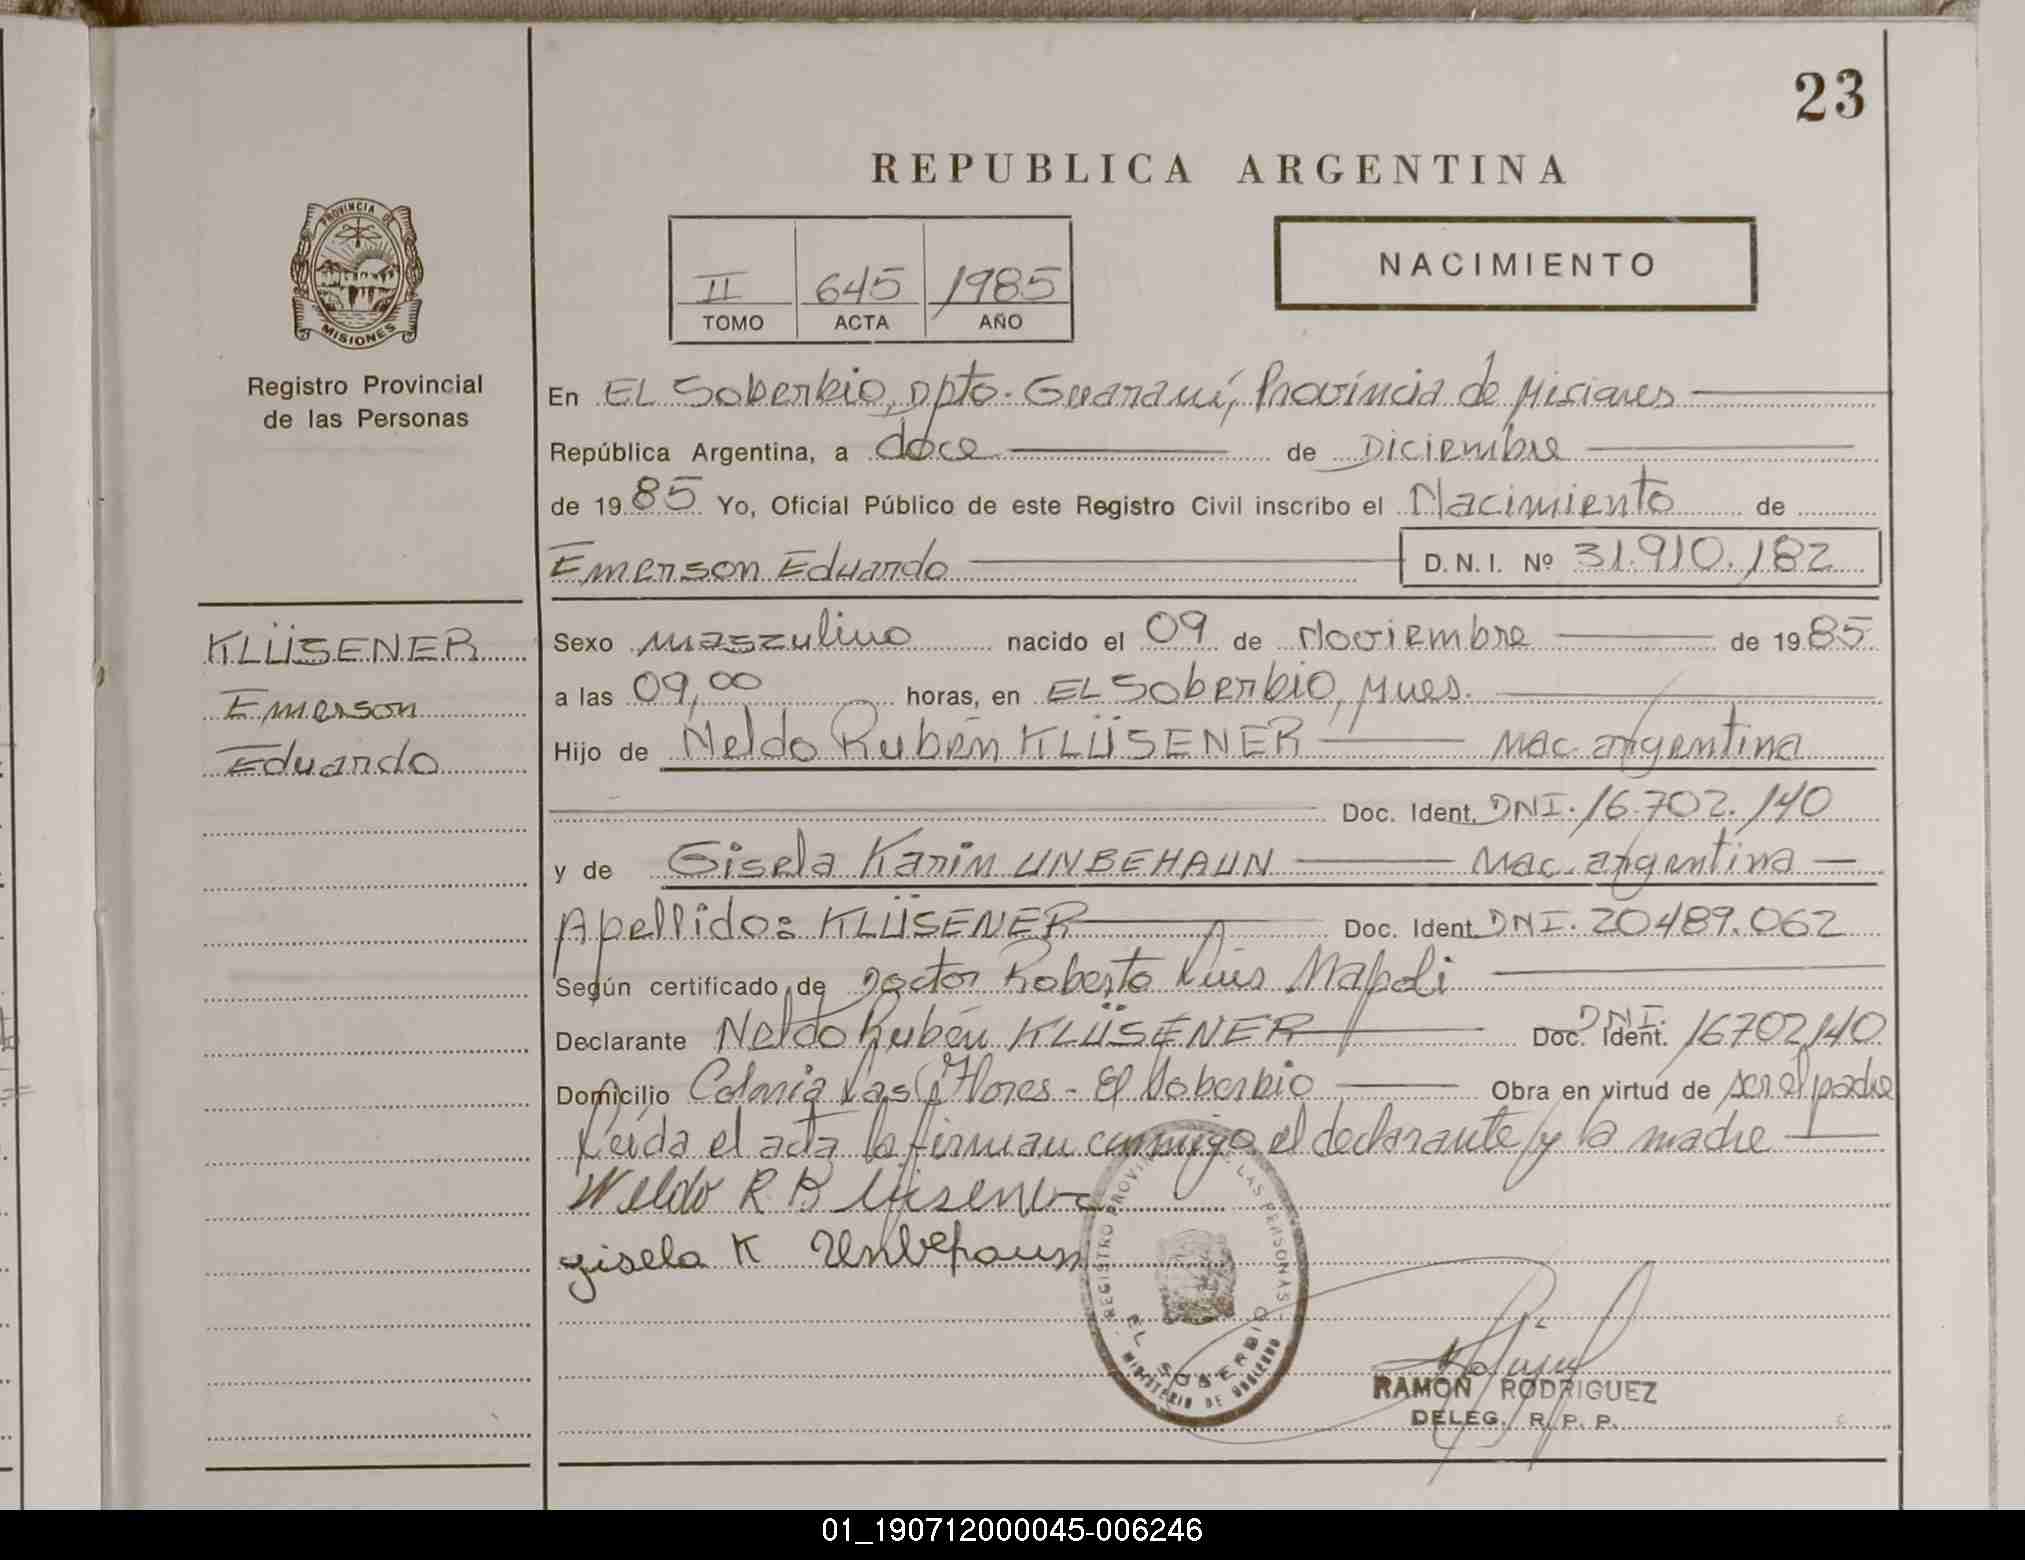 23
REPUBLICA ARGENTINA
PROVINCIA DE
MISIONES
Registro Provincial
de las Personas
II 645 1985
TOMO ACTA AÑO
NACIMIENTO
En EL Soberbio, Dpto. Guaraní, Provincia de Misiones
República Argentina, a doce de Diciembre
de 1985 Yo, Oficial Público de este Registro Civil inscribo el Nacimiento de
Emerson Eduardo D.N.I. Nº 31.910.182
KLÜSENER
Emerson
Eduardo
Sexo masculino nacido el 09 de Noviembre de 1985
a las 09,00 horas, en EL Soberbio, Mnes.
Hijo de Neldo Rubén KLÜSENER Nac. argentina
Doc. Ident. DNI. 16.702.140
y de Gisela Karin UNBEHAUN Nac. argentina
Apellido: KLÜSENER Doc. Ident. DNI. 20489.062
Según certificado de Doctor Roberto Luis Napoli
Declarante Neldo Rubén KLÜSENER Doc. Ident. DNI. 16702140
Domicilio Colonia Las Flores - El Soberbio Obra en virtud de ser el padre
Leída el acta la firman conmigo el declarante y la madre
Neldo R. Klüsener
gisela K Unbehaun
REGISTRO PROVINCIAL DE LAS PERSONAS
EL SOBERBIO
MINISTERIO DE GOBIERNO
RAMON RODRIGUEZ
DELEG. R. P. P.
01_190712000045-006246